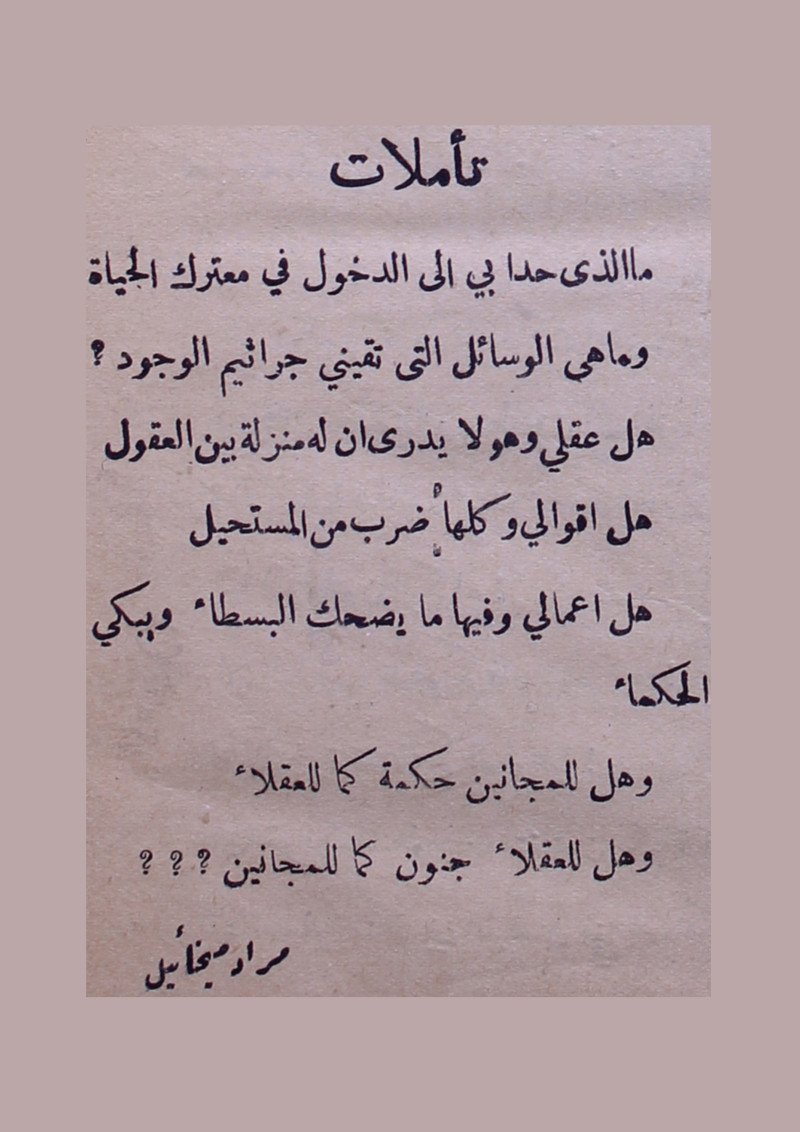 تأملات
ما الذى حدا بي الى الدخول في معترك الحياة
وماهي الوسائل التى تقيني جراثيم الوجود ؟
هل عقلي وهو لا يدرى ان له منزلة بين العقول
هل اقوالي وكلها ضرب من المستحيل
هل اعمالي وفيها ما يضحك البسطاء ويبكي
الحكماء
وهل للمجانين حكمة كما للعقلاء
وهل للعقلاء جنون كما للمجانين ? ? ?
مراد ميخائيل